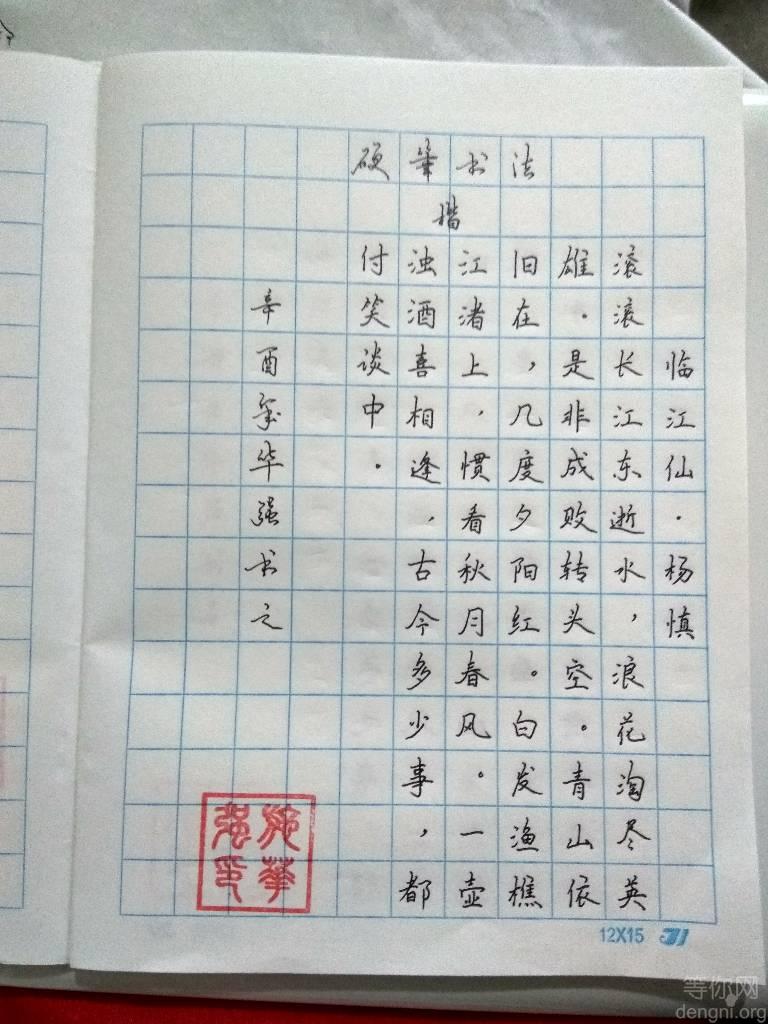 硬筆书法
楷
临江仙·杨慎
滚滚长江东逝水，浪花淘尽英
雄．是非成败转头空。青山依
旧在，几度夕阳红。白发渔樵
江渚上，惯看秋月春风。一壶
浊酒喜相逢，古今多少事，都
付笑谈中．
辛酉年华强书之
施華
强印
12X15
等你网
dengni.org